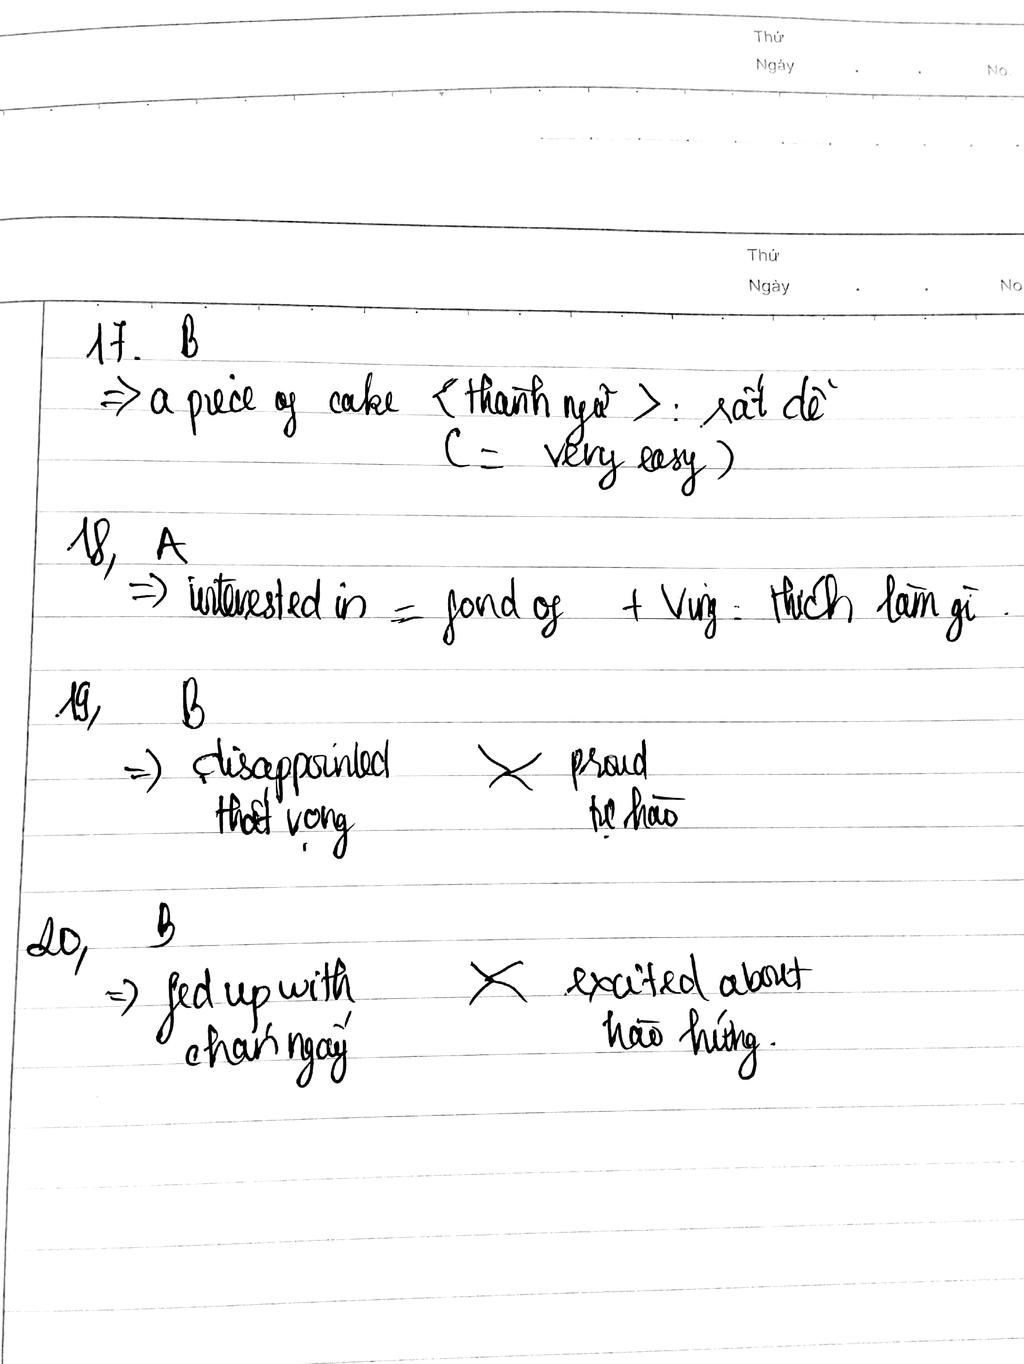 Thứ
Ngày . . No.
Thứ
Ngày . . No
17. B
=> a piece of cake <thành ngữ>: rất dễ
( = very easy )
18, A
=> interested in = fond of + Ving : thích làm gì.
19, B
=> disappointed X proud
thất vọng tự hào
20, B
=> fed up with X excited about
chán ngấy hào hứng.